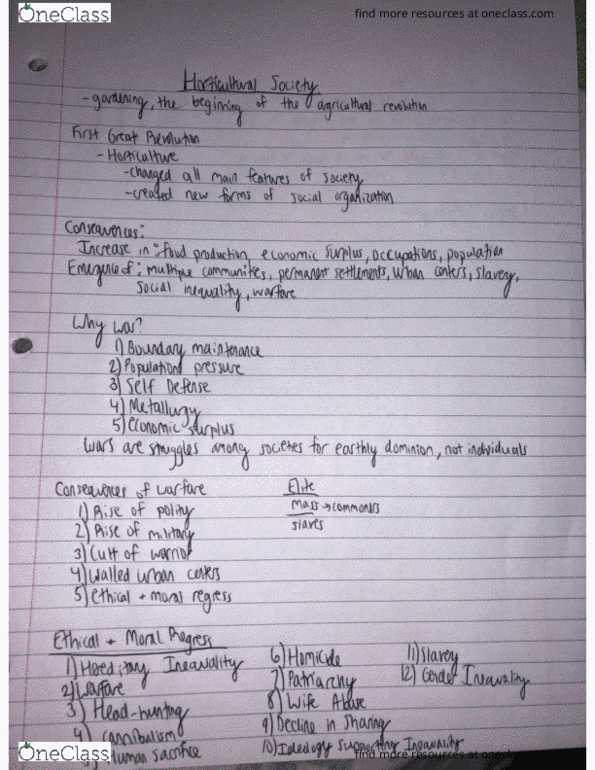 OneClass
find more resources at oneclass.com
Horticultural Society
- gardening, the beginning of the agricultural revolution
First Great Revolution
- Horticulture
- changed all main features of society
- created new forms of social organization
Consequences:
Increase in: food production, economic surplus, occupations, population
Emergence of: multiple communities, permanent settlements, urban centers, slavery,
social inequality, warfare
Why war?
1) Boundary maintenance
2) Population pressure
3) Self Defense
4) Metallurgy
5) economic surplus
Wars are struggles among societies for earthly dominion, not individuals
Consequences of warfare
1) Rise of polity
2) Rise of military
3) Cult of warrior
4) Walled urban centers
5) ethical + moral regress
Elite
mass → commoners
slaves
Ethical + Moral Regress
1) Hereditary Inequality
2) Warfare
3) Head-hunting
4) cannibalism
Human sacrifice
6) Homicide
7) Patriarchy
8) Wife Abuse
9) Decline in Sharing
10) Ideology Supporting Inequality
11) Slavery
12) Gender Inequality
OneClass
find more resources at oneclass.com